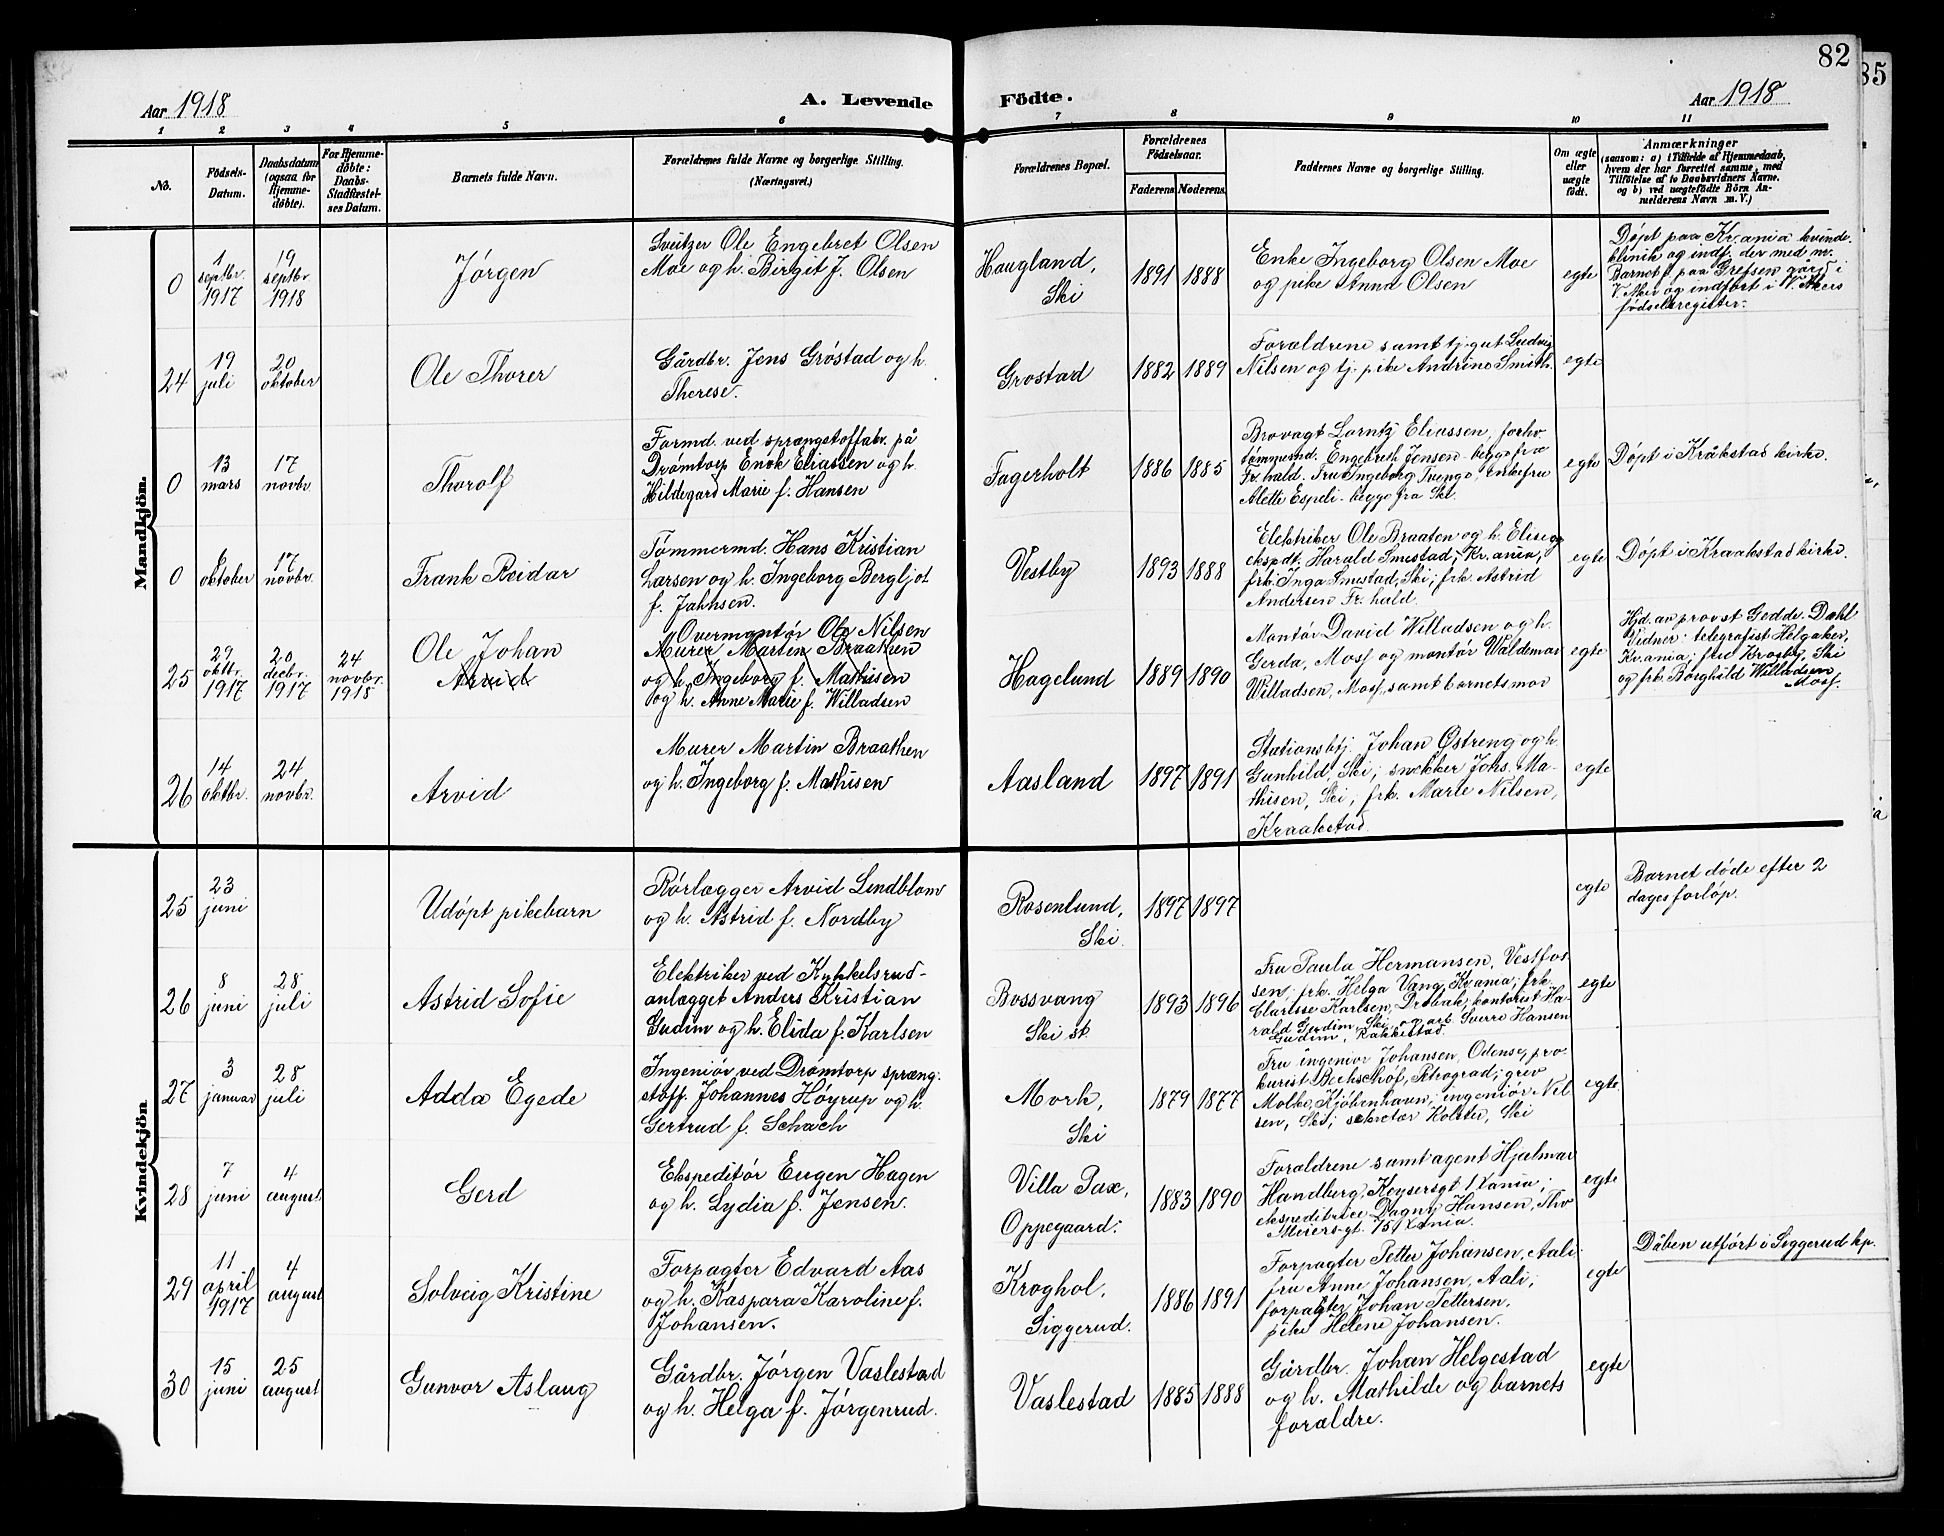 82
85
Aar 1918
A. Levende Födte.
Aar 1918
1 2 3 4 5 6 7 8 9 10 11
No.
Födsels-
Datum.
Daabsdatum
(ogsaa for
Hjemme-
döbte).
For Hjemme-
döbte:
Daabs-
Stadfæstel-
ses Datum.
Barnets fulde Navn.
Forældrenes fulde Navne og borgerlige Stilling.
(Næringsvei.)
Forældrenes Bopæl.
Forældrenes
Födselsaar.
Faderens Moderens
Faddernes Navne og borgerlige Stilling.
Om ægte
eller
uægte
födt.
Anmærkninger
(saasom: a) i Tilfælde af Hjemmedaab,
hvem der har forrettet samme, med
Tilföielse af to Daabsvidners Navne,
og b) ved uægtefödte Börn An-
melderens Navn m. V.)
Mandkjön.
0
1
septbr.
1917
19
septbr
1918
Jørgen
Sveitzer Ole Engebret Olsen
Moe og h. Birgit J. Olsen
Haugland,
Ski
1891 1888
Enke Ingeborg Olsen Moe
og pike Anna Olsen
egte
Døpt paa Kr.ania kvinde-
klinik og indf. der med nr.
Barnet f. paa Grefsen gård i
V. Aker og indført i V. Akers
fødselsregister.
24
19
juli
20
oktober
Ole Thorer
Gårdbr. Jens Grøstad og h.
Therese.
Grostad
1882 1889
Forældrene samt tj.gut Ludvig
Nilsen og tj. pike Andrine Smith.
egte
0
13
mars
17
novbr
Thorolf
Formd. ved sprængstoffabr. på
Drømtorp Enok Eliassen og h.
Hildegard Marie f. Hansen
Fagerholt
1886 1885
Brovagt Lorntz Eliassen, forhv
tømmermd. Engebreth Jensen - begge fra
Fr.hald. Fru Ingeborg Tvenge, enkefru
Alette Espeli - begge fra Ski.
egte
Døpt i Kråkstad kirke.
0
6
oktober
17
novbr.
Frank Reidar
Tømmermd. Hans Kristian
Larsen og h. Ingeborg Bergljot
f. Jahnsen.
Vestby
1893 1888
Elektriker Ole Braaten og h. Elise og
ekspdt. Harald Smestad, Kr.ania,
frk. Inga Smestad, Ski; frk. Astrid
Andersen Fr.hald.
egte
Døpt i Kraakstad kirke.
25
29
oktbr.
1917
20
decbr.
1917
24
novbr.
1918
Ole Johan
Arvid
Overmontør Ole Nilsen
Murer Martin Braathen
og h. Ingeborg f. Mathisen
og h. Anne Marie f. Willadsen
Hagelund
1889 1890
Montør David Willadsen og h.
Gerda, Moss og montør Waldemar
Willadsen, Moss, samt barnets mor
egte
Hjd. av provst Gedde-Dahl
Vidner: telegrafist Helgaker,
Kr.ania; frk Krosby, Ski
og frk. Borghild Willadsen
Moss.
26
14
oktbr.
24
novbr.
Arvid
Murer Martin Braathen
og h. Ingeborg f. Mathisen
Aasland
1897 1891
Stationsbtj. Johan Østreng og h.
Gunhild, Ski; snekker Johs. Ma-
thisen, Ski; frk. Marie Nilsen,
Kraakstad.
egte
Kvindekjön
25
23
juni
Udøpt pikebarn
Rørlægger Arvid Lindblom
og h. Astrid f. Nordby
Rosenlund,
Ski.
1897 1897
egte
Barnet døde efter 2
dages forløp.
26
8
juni
28
juli
Astrid Sofie
Elektriker ved Kykkelsrud-
anlægget Anders Kristian
Gudim og h. Elida f. Karlsen
Bossvang
Ski st.
1893 1896
Fru Paula Hermansen, Vestfos
sen; frk. Helga Vang Kr.ania; frk.
Clarisse Karlsen, Drøbak; kontorist Ha-
rald Gudim, Ski og arb. Sverre Hansen
Gudim, Rakkestad
egte
27
3
januar
28
juli
Adda Egede
Ingeniør ved Drømtorp spræng-
stoff. Johannes Høyrup og h.
Gertrud f. Schach
Mork,
Ski
1879 1877
Fru ingeniør Johansen, Odense, pro-
kurist Bechschöf, Petrograd; grev
Molke, Kjøbenhavn; ingeniør Nil
sen, Ski; sekretær Holster, Ski
egte
28
7
juni
4
august
Gerd
Ekspeditør Eugen Hagen
og h. Lydia f. Jensen.
Villa Pax,
Oppegaard.
1883 1890
Forældrene samt agent Hjalmar
Handberg, Keysersgt 1 Xania;
ekspeditrice Dagny Hansen, Thv
Meiers gt. 75 Xania.
egte
29
11
april
1917
4
august
Solveig Kristine
Forpagter Edvard Aas
og h. Kaspara Karoline f.
Johansen.
Kroghol,
Siggerud.
1886 1891
Forpagter Petter Johansen, Aali
fru Anne Johansen, Aali,
forpagter Johan Pettersen,
pike Helene Johansen.
egte
Dåben utført i Siggerud kp.
30
15
juni
25
august
Gunvor Aslaug
Gårdbr. Jørgen Vaslestad
og h. Helga f. Jørgenrud.
Vaslestad
1885 1888
Gårdbr. Johan Helgestad
og h. Mathilde og barnets
forældre.
egte